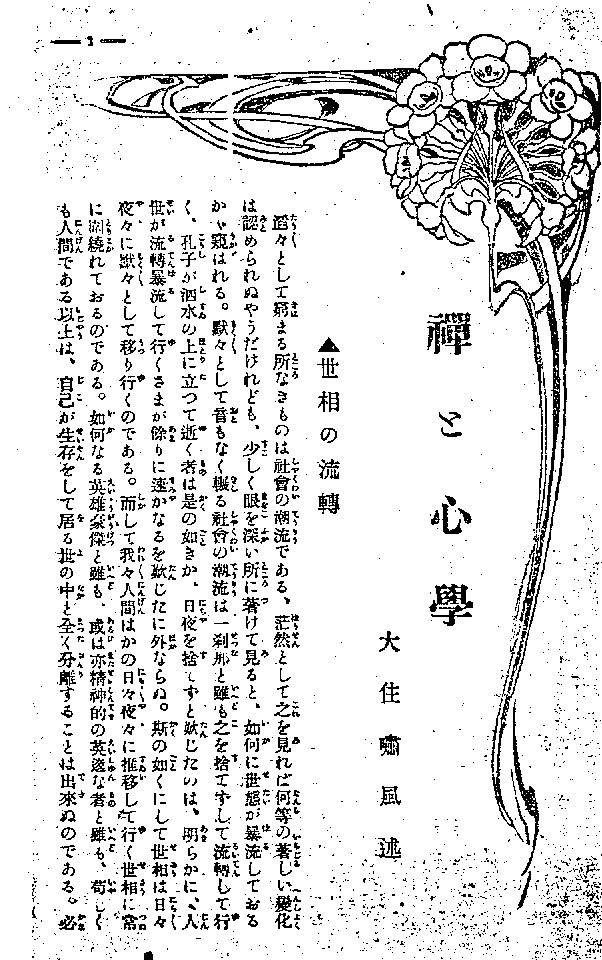 — 1 —
禪と心學
大住嘯風述
▲世相の流轉
滔々として窮まる所なきものは社會の潮流である、茫然として之を見れば何等の著しい變化
は認められぬやうだけれども、少しく眼を深い所に著けて見ると、如何に世態が暴流しておる
かゞ窺はれる。默々として音もなく輾る社會の潮流は一刹那と雖も之を捨てずして流轉して行
く、孔子が泗水の上に立つて逝く者は是の如きか、日夜を捨てずと歎じたのは、明らかに、人
世が流轉暴流して行くさまが餘りに速かなるを歎じたに外ならぬ。斯の如くにして世相は日々
夜々に默々として移り行くのである。而して我々人間はかの日々夜々に推移して行く世相に常
に圍繞れておるのである。如何なる英雄豪傑と雖も、或は亦精神的の英邁な者と雖も、苟しく
も人間である以上は、自己が生存をして居る世の中と全く分離することは出來ぬのである。必